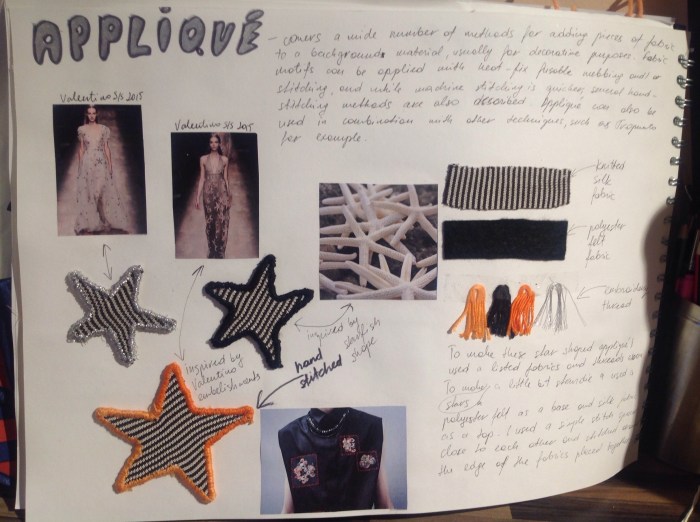 APPLIQUÉ
– covers a wide number of methods for adding pieces of fabric
to a background material, usually for decorative purposes. Fabric
motifs can be applied with heat-fix fusible webbing and/or
stitching, and while machine stitching is quicker, several hand-
stitching methods are also described. Appliqué can also be
used in combination with other techniques, such as
for example.
Valentino S/S 2015
Valentino S/S 2015
knitted
silk
fabric
polyester
felt
fabric
embroidery
thread
inspired by
starfish
shape
inspired by
Valentino
embelishments
hand
stitched
To make these star shaped appliqué I
used a listed fabrics and threads
To make a little bit a used a
stars
polyester felt as a base and silk
as a top. I used a simple stitch
close to each other and stitched
the edge of the fabrics placed together